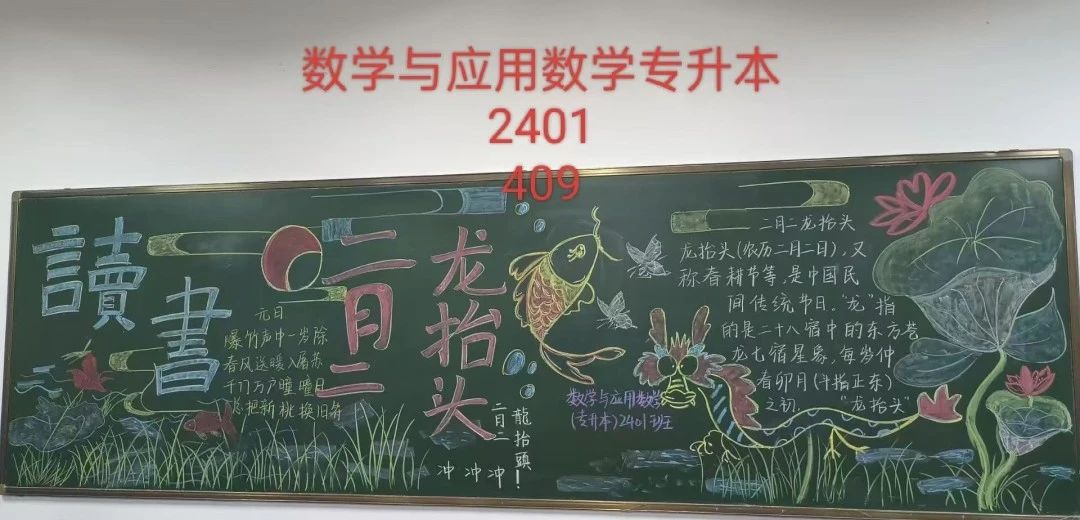 数学与应用数学专升本
2401
409
讀書
元日
爆竹声中一岁除
春风送暖入屠苏
千门万户曈曈日
总把新桃换旧符
二月二
龙抬头
二月二
龍抬頭！
冲 冲 冲
数学与应用数学
(专升本)2401班
二月二龙抬头
龙抬头(农历二月二日)，又
称春耕节等，是中国民
间传统节日。"龙"指
的是二十八宿中的东方苍
龙七宿星象，每岁仲
春卯月(斗指正东)
之初 "龙抬头"